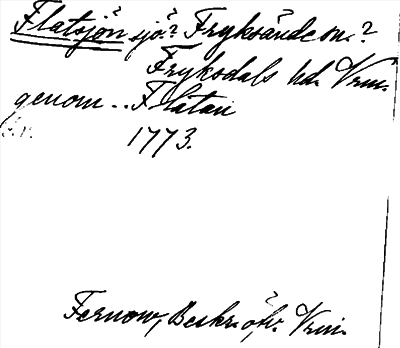 Flatsjön sjö? Fryksände sn.?
Fryksdals hd. Vrm.
genom .. Flatan
1773.
Fernow, Beskr. öfv. Vrm.